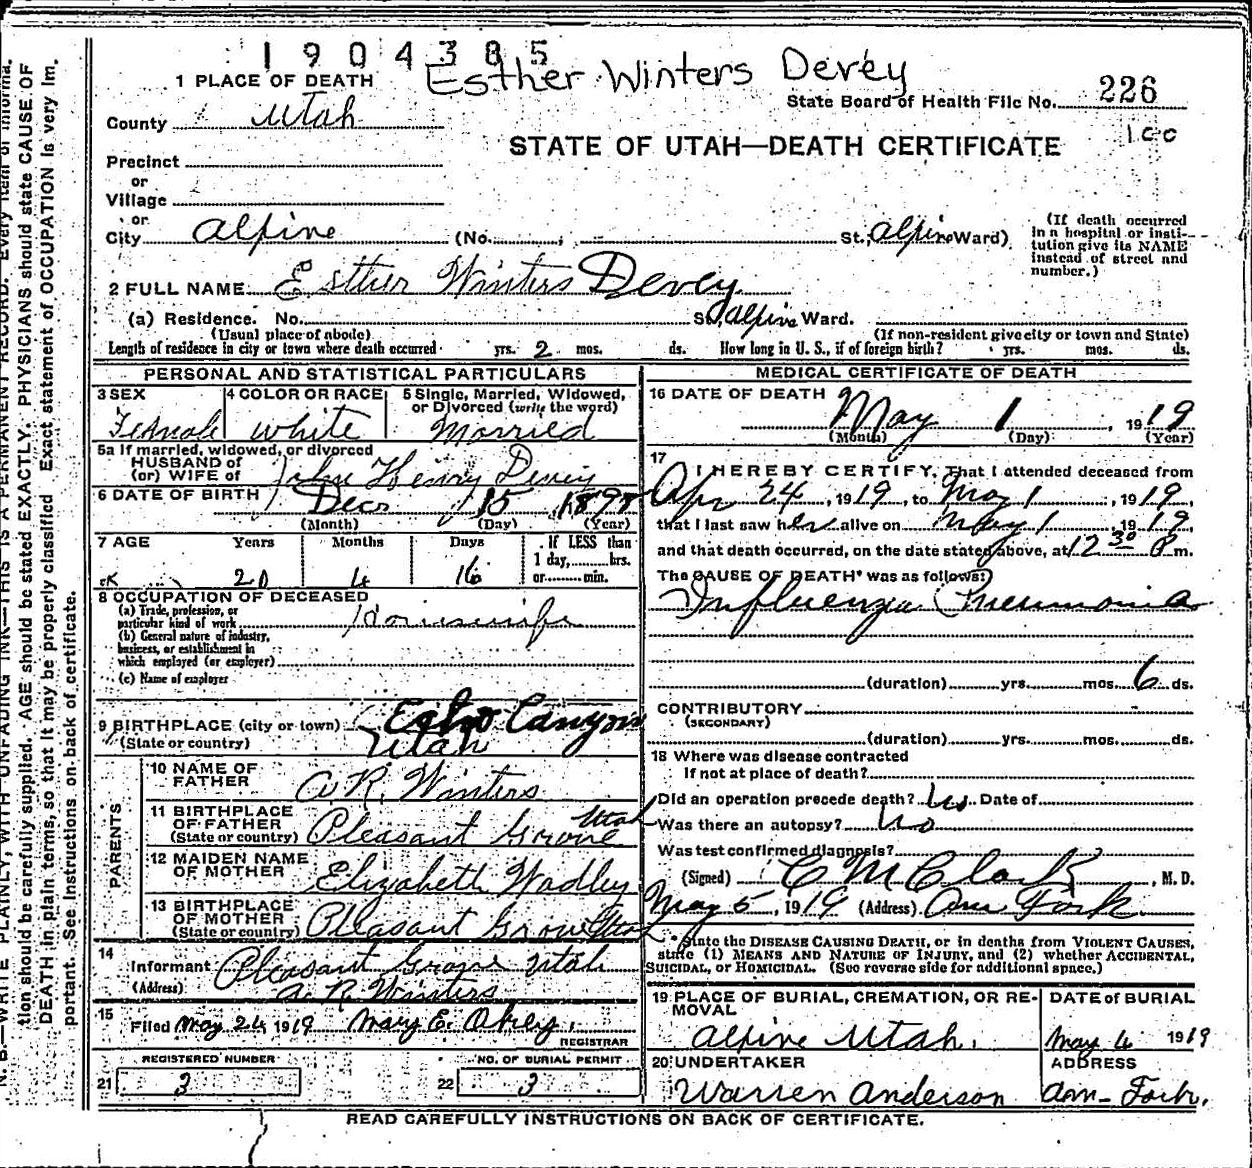 1904385
Esther Winters Devey
1 PLACE OF DEATH
State Board of Health File No. 226
County Utah
100
STATE OF UTAH—DEATH CERTIFICATE
Precinct
or
Village
or
City Alpine (No. ; St., Alpine Ward)
(If death occurred in a hospital or institution give its NAME instead of street and number.)
2 FULL NAME Esther Winters Devey
(a) Residence. No. St., Alpine Ward.
(Usual place of abode) (If non-resident give city or town and State)
Length of residence in city or town where death occurred yrs. 2 mos. ds. How long in U. S., if of foreign birth? yrs. mos. ds.
PERSONAL AND STATISTICAL PARTICULARS
3 SEX 4 COLOR OR RACE 5 Single, Married, Widowed, or Divorced (write the word)
Female white Married
5a If married, widowed, or divorced
HUSBAND of
(or) WIFE of John Henry Devey
6 DATE OF BIRTH Dec 15 1898
(Month) (Day) (Year)
7 AGE Years Months Days If LESS than 1 day, hrs. or min.
20 4 16
8 OCCUPATION OF DECEASED
(a) Trade, profession, or particular kind of work Housewife
(b) General nature of industry, business, or establishment in which employed (or employer)
(c) Name of employer
9 BIRTHPLACE (city or town) Echo Canyon
(State or country) Utah
PARENTS
10 NAME OF FATHER A. R. Winters
11 BIRTHPLACE OF FATHER (State or country) Pleasant Grove Utah
12 MAIDEN NAME OF MOTHER Elizabeth Wadley
13 BIRTHPLACE OF MOTHER (State or country) Pleasant Grove Utah
14 Informant Pleasant Grove Utah
(Address) A. R. Winters
15 Filed May 24 1919 Mary E.
REGISTRAR
REGISTERED NUMBER NO. OF BURIAL PERMIT
21 3 22 3
MEDICAL CERTIFICATE OF DEATH
16 DATE OF DEATH May 1, 1919
(Month) (Day) (Year)
17 I HEREBY CERTIFY, That I attended deceased from
Apr 24, 1919, to May 1, 1919,
that I last saw her alive on May 1, 1919,
and that death occurred, on the date stated above, at 12 30 P m.
The CAUSE OF DEATH* was as follows:
Influenza Pneumonia
(duration) yrs. mos. 6 ds.
CONTRIBUTORY
(SECONDARY)
(duration) yrs. mos. ds.
18 Where was disease contracted
If not at place of death?
Did an operation precede death? No Date of
Was there an autopsy? No
Was test confirmed diagnosis?
(Signed) C M Clark, M. D.
May 5, 1919 (Address) Am Fork
*State the DISEASE CAUSING DEATH, or in deaths from VIOLENT CAUSES, state (1) MEANS AND NATURE OF INJURY, and (2) whether ACCIDENTAL, SUICIDAL, or HOMICIDAL. (See reverse side for additional space.)
19 PLACE OF BURIAL, CREMATION, OR REMOVAL DATE of BURIAL
Alpine Utah. May 4 1919
20 UNDERTAKER ADDRESS
Warren Anderson Am- Fork.
READ CAREFULLY INSTRUCTIONS ON BACK OF CERTIFICATE.
N. B.—WRITE PLAINLY, WITH UNFADING INK—THIS IS A PERMANENT RECORD. Every item of informa-
tion should be carefully supplied. AGE should be stated EXACTLY. PHYSICIANS should state CAUSE OF
DEATH in plain terms, so that it may be properly classified. Exact statement of OCCUPATION is very im-
portant. See instructions on back of certificate.